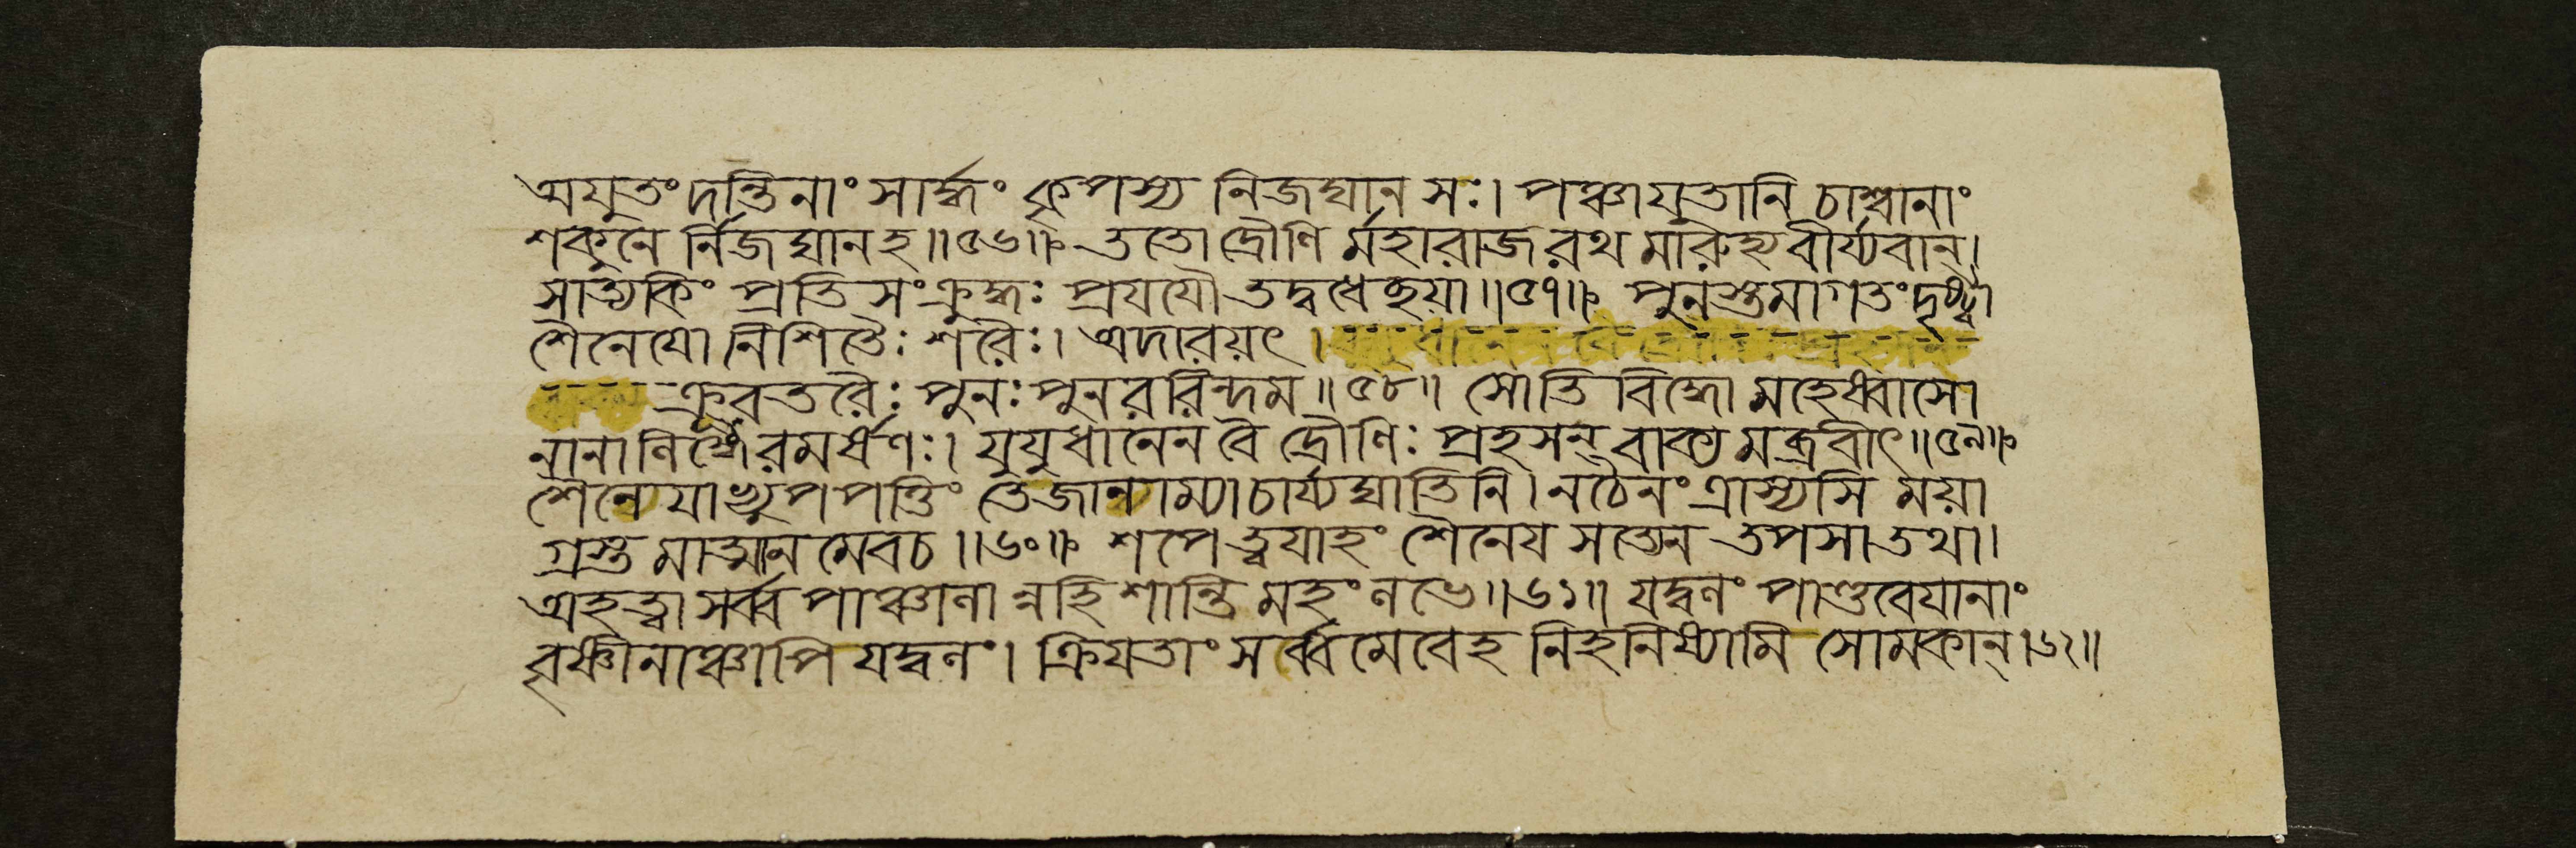 অযুতং দন্তিনাং সার্দ্ধং কৃপস্য নিজঘান সঃ। পঞ্চাযুতানি চাশ্বানাং
শকুনে র্নিজঘান হ॥৫৬॥ ততো দ্রৌণি র্মহারাজ রথ মারুহ্য বীর্য্যবান্।
সাত্যকিং প্রতি সংক্রুদ্ধঃ প্রযযৌ তদ্বধেপ্সয়া॥৫৭॥ পুনস্তমাগতং দৃষ্ট্বা
শৈনেযো নিশিতৈঃ শরৈঃ। অদারয়ৎ
ক্রূরতরৈঃ পুনঃ পুনররিন্দম॥৫৮॥ সোতি বিদ্ধো মহেষ্বাসো
নানালিঙ্গৈরমর্ষণঃ। যুযুধানেন বৈ দ্রৌণিঃ প্রহসন্ বাক্য মব্রবীৎ॥৫৯॥
শৈনেযাভ্যুপপত্তিং তে জানাম্যাচার্য্যঘাতিনি। নচৈনং ত্রাস্যসি ময়া
গ্রস্ত মাত্মান মেবচ॥৬০॥ শপে ত্বযাহং শৈনেয সত্যেন তপসা তথা।
অহত্বা সর্ব্ব পাঞ্চালা ন্নহি শান্তি মহং লভে॥৬১॥ যদ্বলং পাণ্ডবেযানাং
বৃষ্ণীনাঞ্চাপি যদ্বলং। ক্রিযতাং সর্ব্ব মেবেহ নিহনিষ্যামি সোমকান্।৬২॥